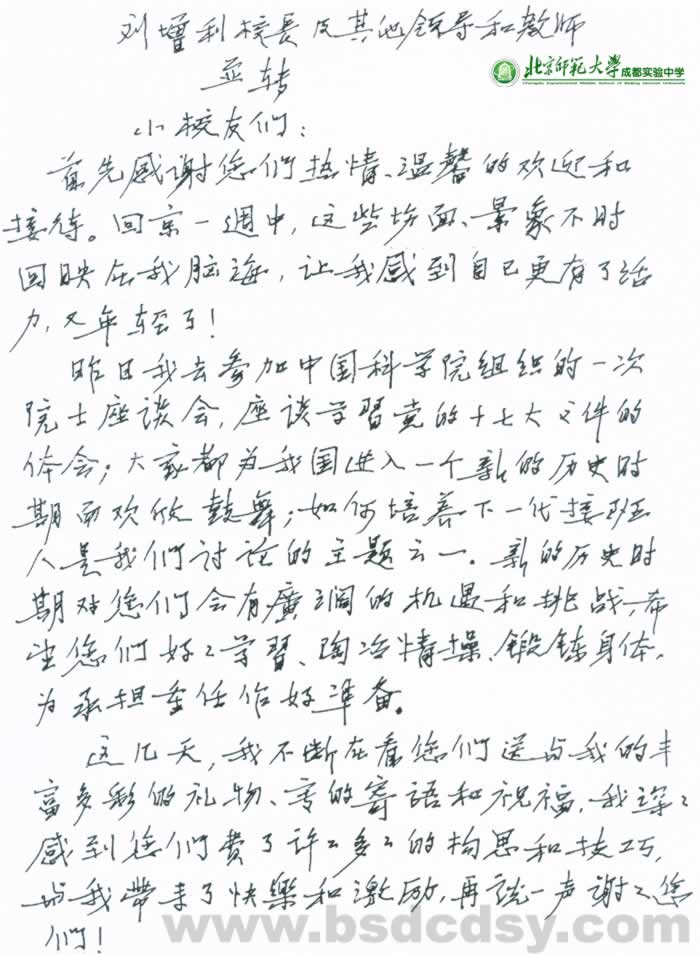 刘增利校長及其他领导和教师
並转
北京师范大学成都实验中学
小校友们：
首先感谢您们热情、温馨的欢迎和
接待。回京一週中，这些场面、景象不时
回映在我脑海，让我感到自己更有了活
力，又年轻了！
昨日我去参加中国科学院组织的一次
院士座谈会，座谈学習党的十七大文件的
体会；大家都为我国进入一个新的历史时
期而欢欣鼓舞；如何培养下一代接班
人是我们讨论的主题之一。新的历史时
期对您们会有廣阔的机遇和挑战，希
望您们好〻学習、陶冶情操、鍛鍊身体，
为承担重任作好準备。
这几天，我不断在看您们送与我的丰
富多彩的礼物、寄語和祝福，我深〻
感到您们費了许〻多〻的构思和技巧，
与我帶来了快樂和激励，再説一声谢〻您
们！
www.bsdcdsy.com